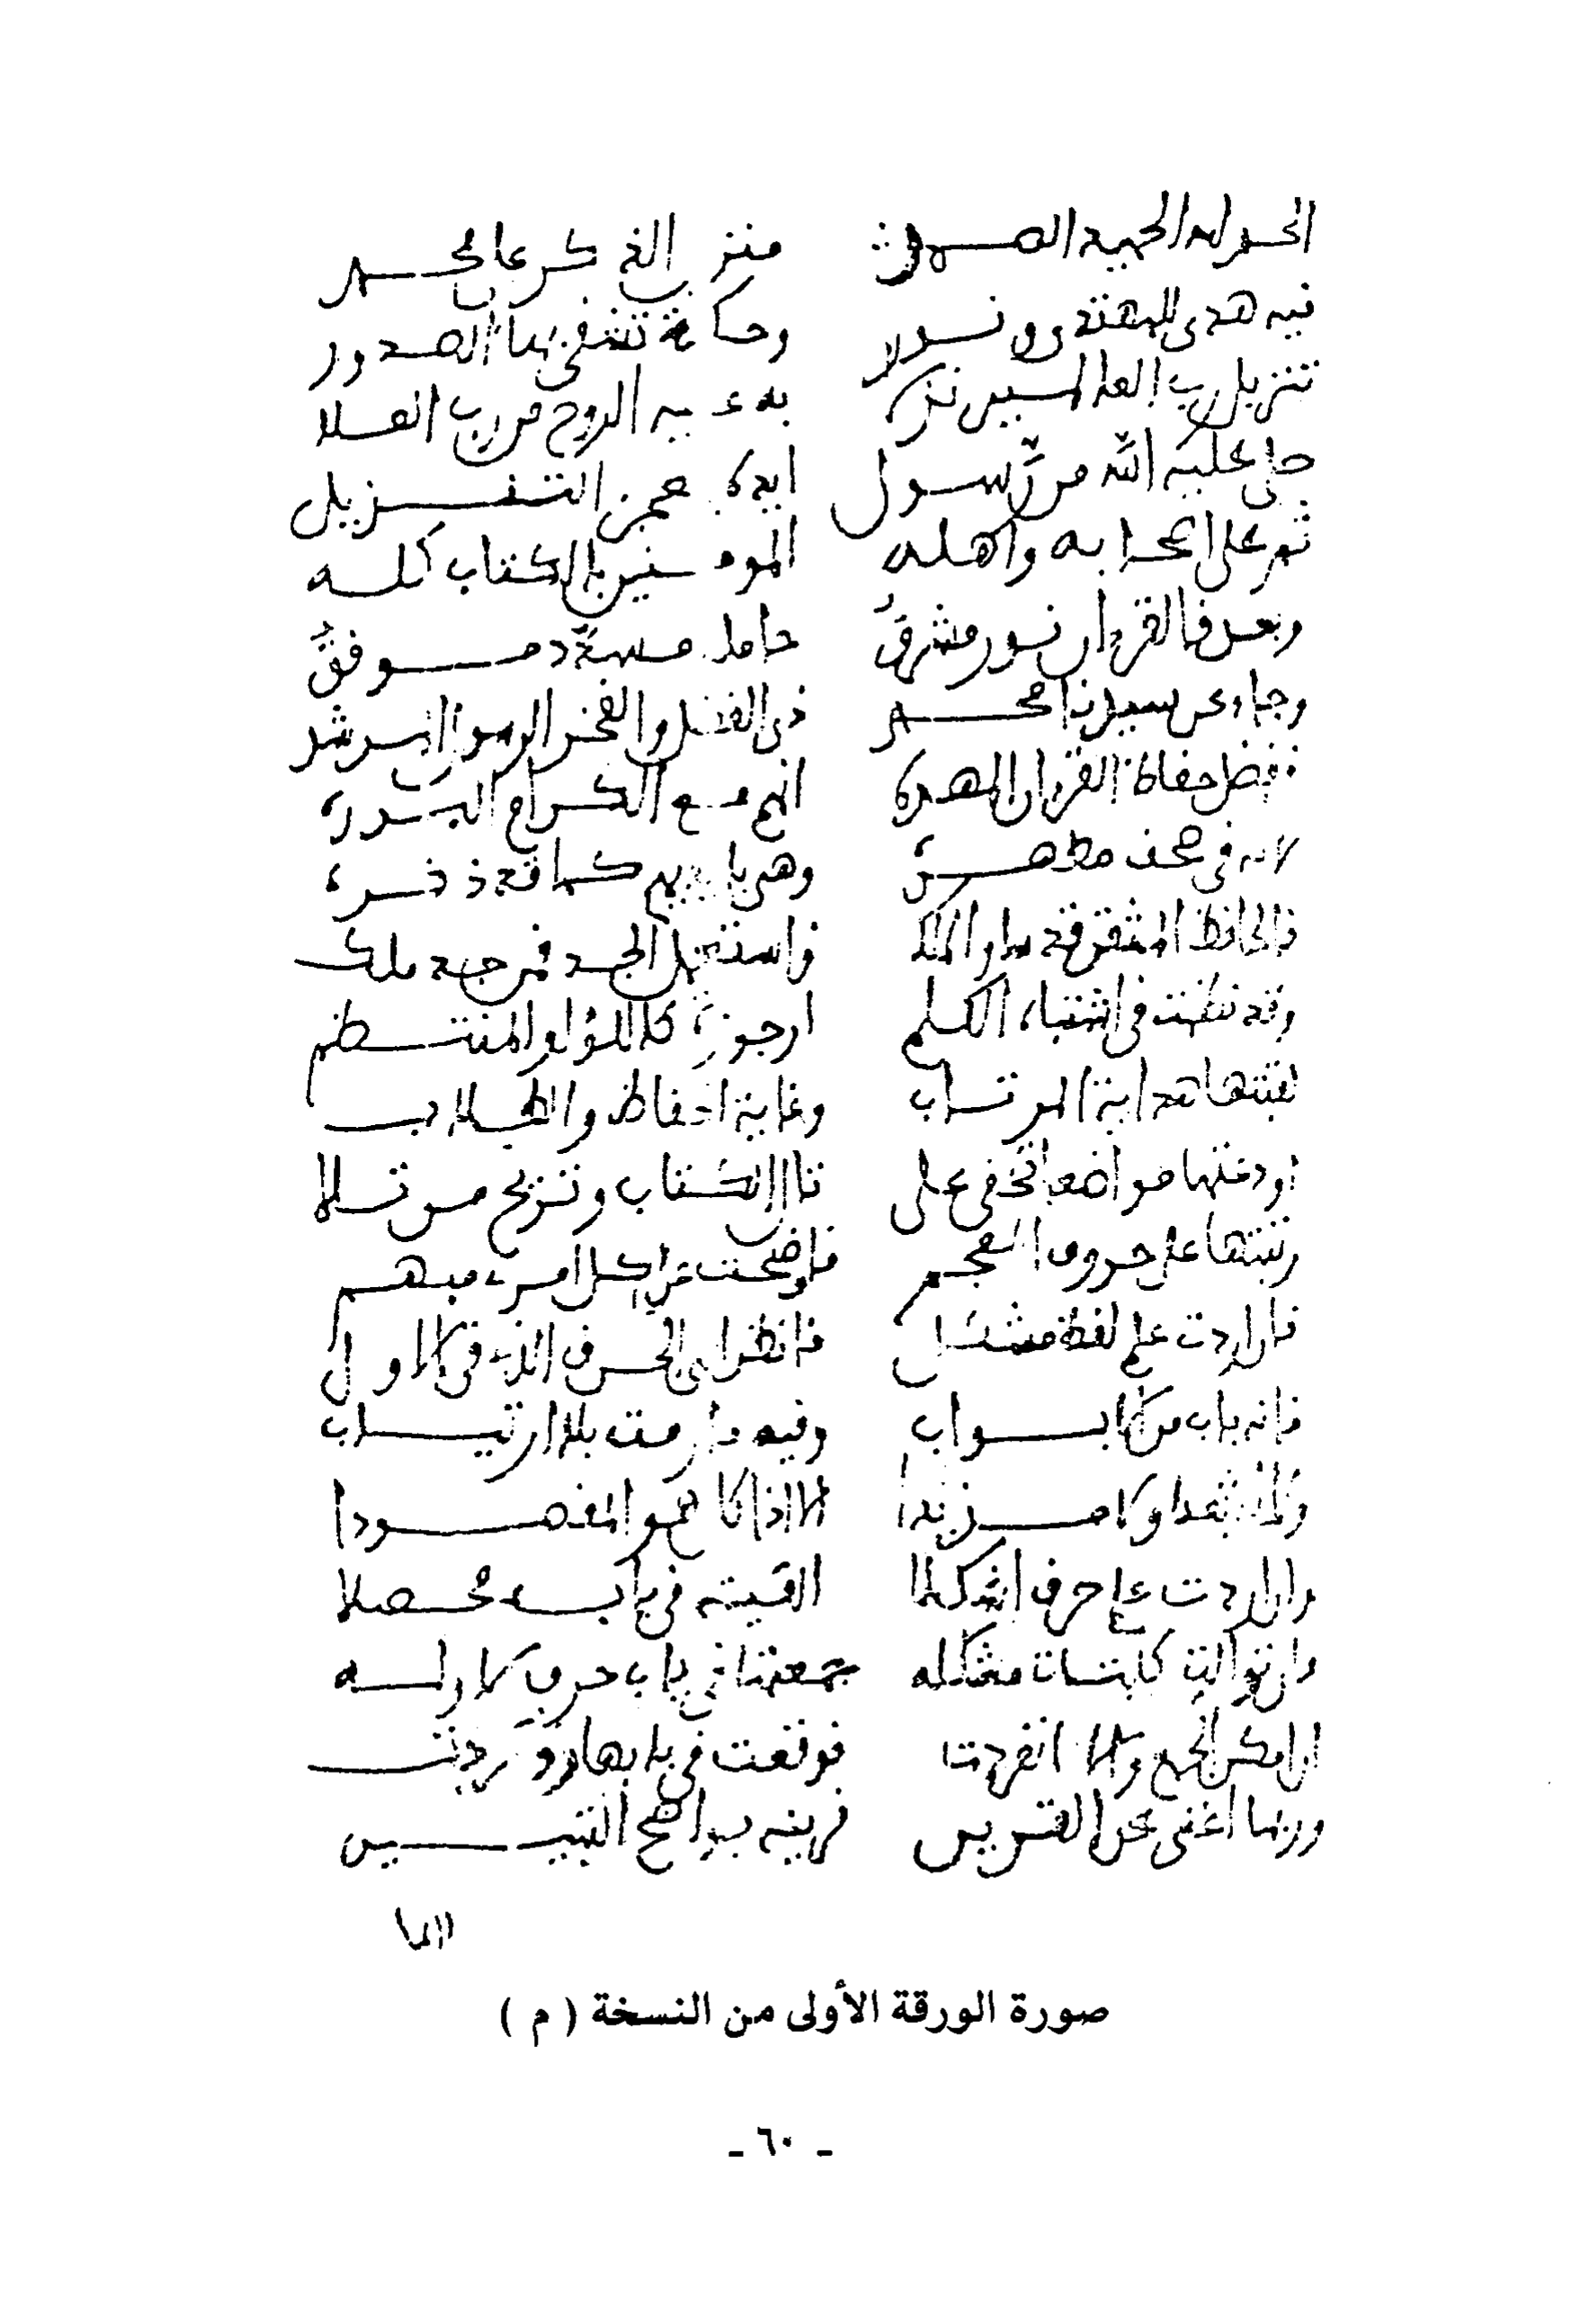 الحمد لله الحميد الصمد منزل الذكر على محمد
فيه هدى للمهتدي ونور وحكمة تشفى بها الصدور
تنزيل رب العالمين نزلا به عليه الروح من رب العلا
صلى عليه الله من رسول ايده بمحكم التنزيل
ثم على اصحابه واهله المومنين بالكتاب كله
وبعد فالقران نور مشرق حامله مسدد موفق
وجاء عن سيدنا محمد ذي الفضل والفخر الرسول المرشد
فضل حفاظ القران المهره انهم مع الكرام البرره
لانه في صحف مطهره وهي بايديهم كما قد ذكره
فالحافظ المتقن قد ساوا الملك فاستعمل الجد فمن جد ملك
وقد نظمت في اشتباه الكلم ارجوزة كاللؤلؤ المنتظم
لقبتها هداية المرتاب وغاية الحفاظ والطلاب
اودعتها مواضعا تخفى على تال الكتاب وتريح من تلا
رتبتها على حروف المعجم فاوضحت عن كل امر مبهم
فان اردت علم لفظ مشكل فانظر الى الحرف الذي في الاول
فانه باب من الابواب وفيه ما رمت بلا ارتياب
الا اذا كان هو المقصودا
وان اردت علم حرف اشكلا الفيته في بابه محصلا
وان توالت كلمات مشكله جمعتها في باب حرف الاوله
ان امكن الجمع والا انفردت فوقعت في بابها ووردت
وربما اغنى عن القرين قرينه بواضح التبيين
صورة الورقة الأولى من النسخة ( م )
- ٦٠ -